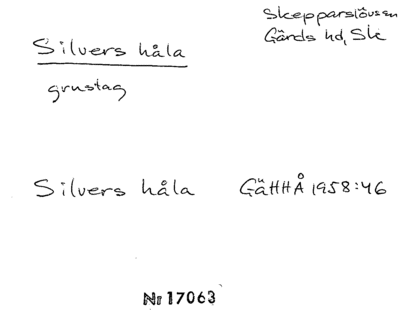 Skepparslövssn
Gärds hd, Sk
Silvers håla
grustag
Silvers håla GäHHÅ 1958:46
Nr 17063